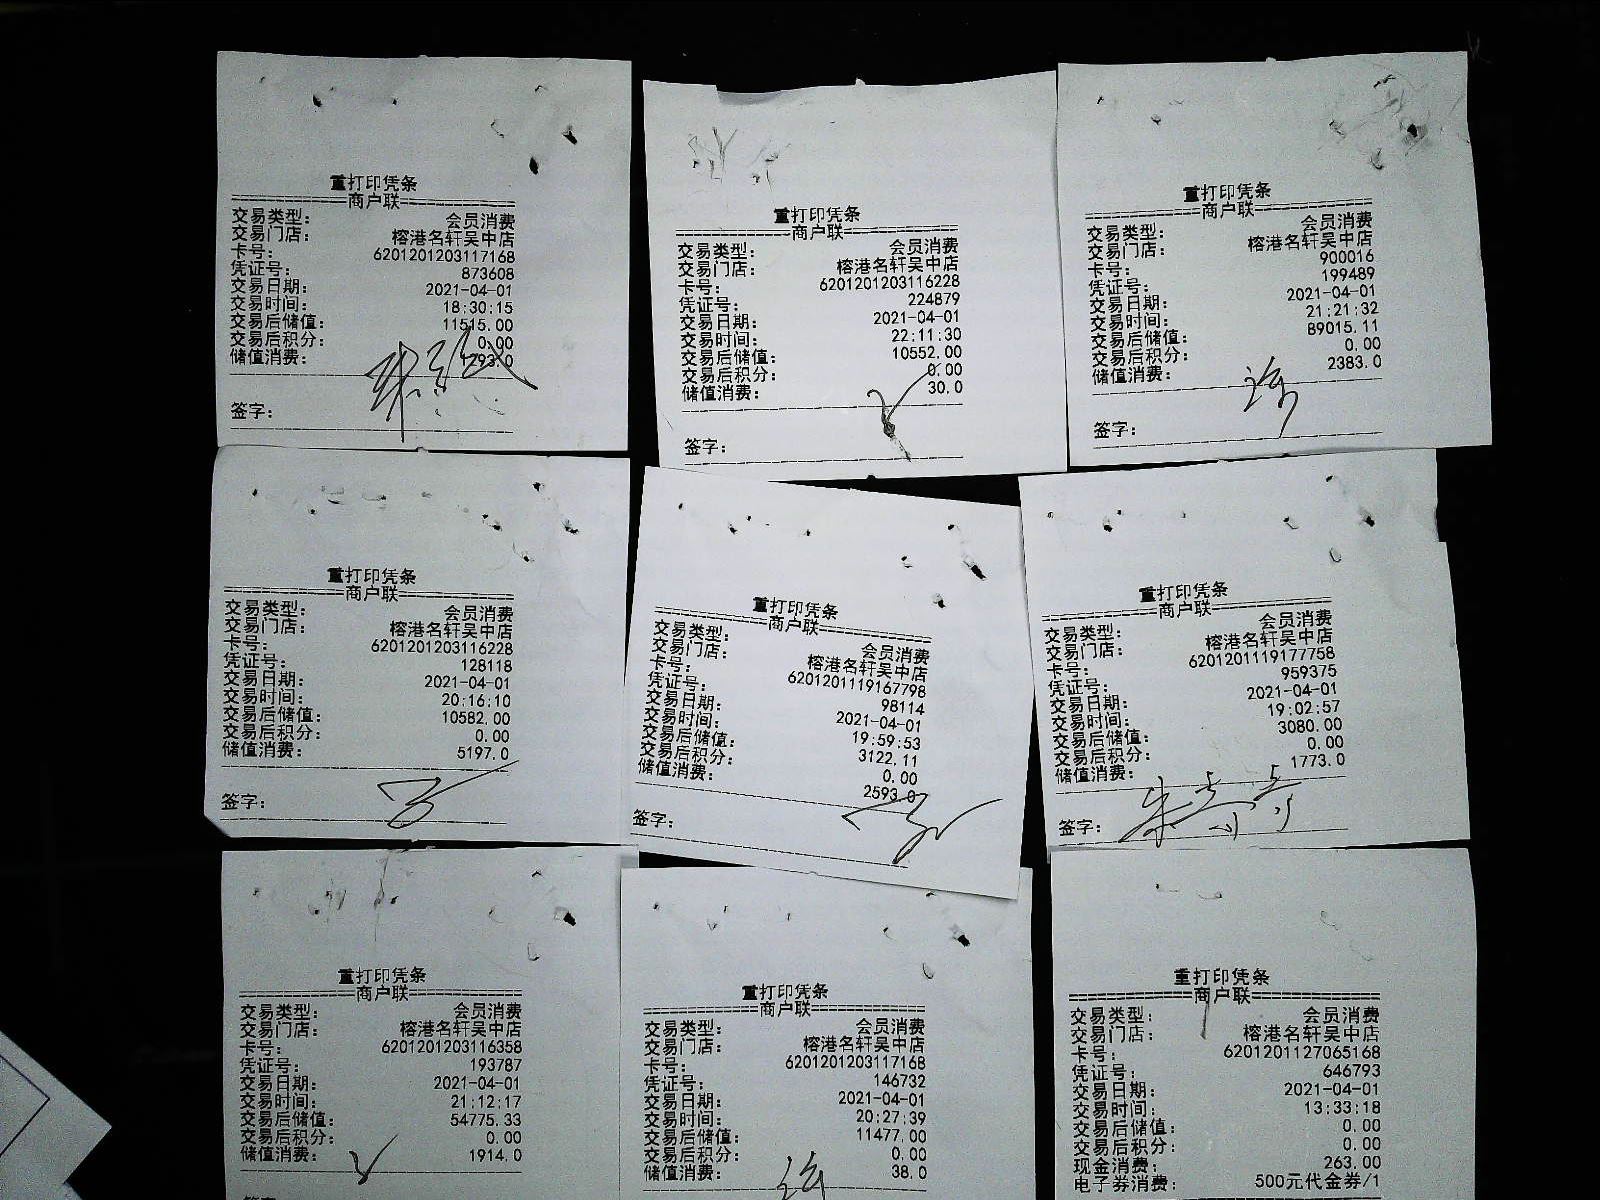 重打印凭条
商户联
交易类型: 会员消费
交易门店: 榕港名轩吴中店
卡号: 6201201203117168
凭证号: 873608
交易日期: 2021-04-01
交易时间: 18:30:15
交易后储值: 11515.00
交易后积分: 0.00
储值消费:
签字:
重打印凭条
商户联
交易类型: 会员消费
交易门店: 榕港名轩吴中店
卡号: 6201201203116228
凭证号: 224879
交易日期: 2021-04-01
交易时间: 22:11:30
交易后储值: 10552.00
交易后积分: 0.00
储值消费: 30.0
签字:
重打印凭条
商户联
交易类型: 会员消费
交易门店: 榕港名轩吴中店
卡号: 900016
凭证号: 199489
交易日期: 2021-04-01
交易时间: 21:21:32
交易后储值: 89015.11
交易后积分: 0.00
储值消费: 2383.0
签字:
重打印凭条
商户联
交易类型: 会员消费
交易门店: 榕港名轩吴中店
卡号: 6201201203116228
凭证号: 128118
交易日期: 2021-04-01
交易时间: 20:16:10
交易后储值: 10582.00
交易后积分: 0.00
储值消费: 5197.0
签字:
重打印凭条
商户联
交易类型: 会员消费
交易门店: 榕港名轩吴中店
卡号: 6201201119167798
凭证号: 98114
交易日期: 2021-04-01
交易时间: 19:59:53
交易后储值: 3122.11
交易后积分: 0.00
储值消费: 2593.0
签字:
重打印凭条
商户联
交易类型: 会员消费
交易门店: 榕港名轩吴中店
卡号: 6201201119177758
凭证号: 959375
交易日期: 2021-04-01
交易时间: 19:02:57
交易后储值: 3080.00
交易后积分: 0.00
储值消费: 1773.0
签字:
重打印凭条
商户联
交易类型: 会员消费
交易门店: 榕港名轩吴中店
卡号: 6201201203116358
凭证号: 193787
交易日期: 2021-04-01
交易时间: 21:12:17
交易后储值: 54775.33
交易后积分: 0.00
储值消费: 1914.0
重打印凭条
商户联
交易类型: 会员消费
交易门店: 榕港名轩吴中店
卡号: 6201201203117168
凭证号: 146732
交易日期: 2021-04-01
交易时间: 20:27:39
交易后储值: 11477.00
交易后积分: 0.00
储值消费: 38.0
重打印凭条
商户联
交易类型: 会员消费
交易门店: 榕港名轩吴中店
卡号: 6201201127065168
凭证号: 646793
交易日期: 2021-04-01
交易时间: 13:33:18
交易后储值: 0.00
交易后积分: 0.00
现金消费: 263.00
电子券消费: 500元代金券/1